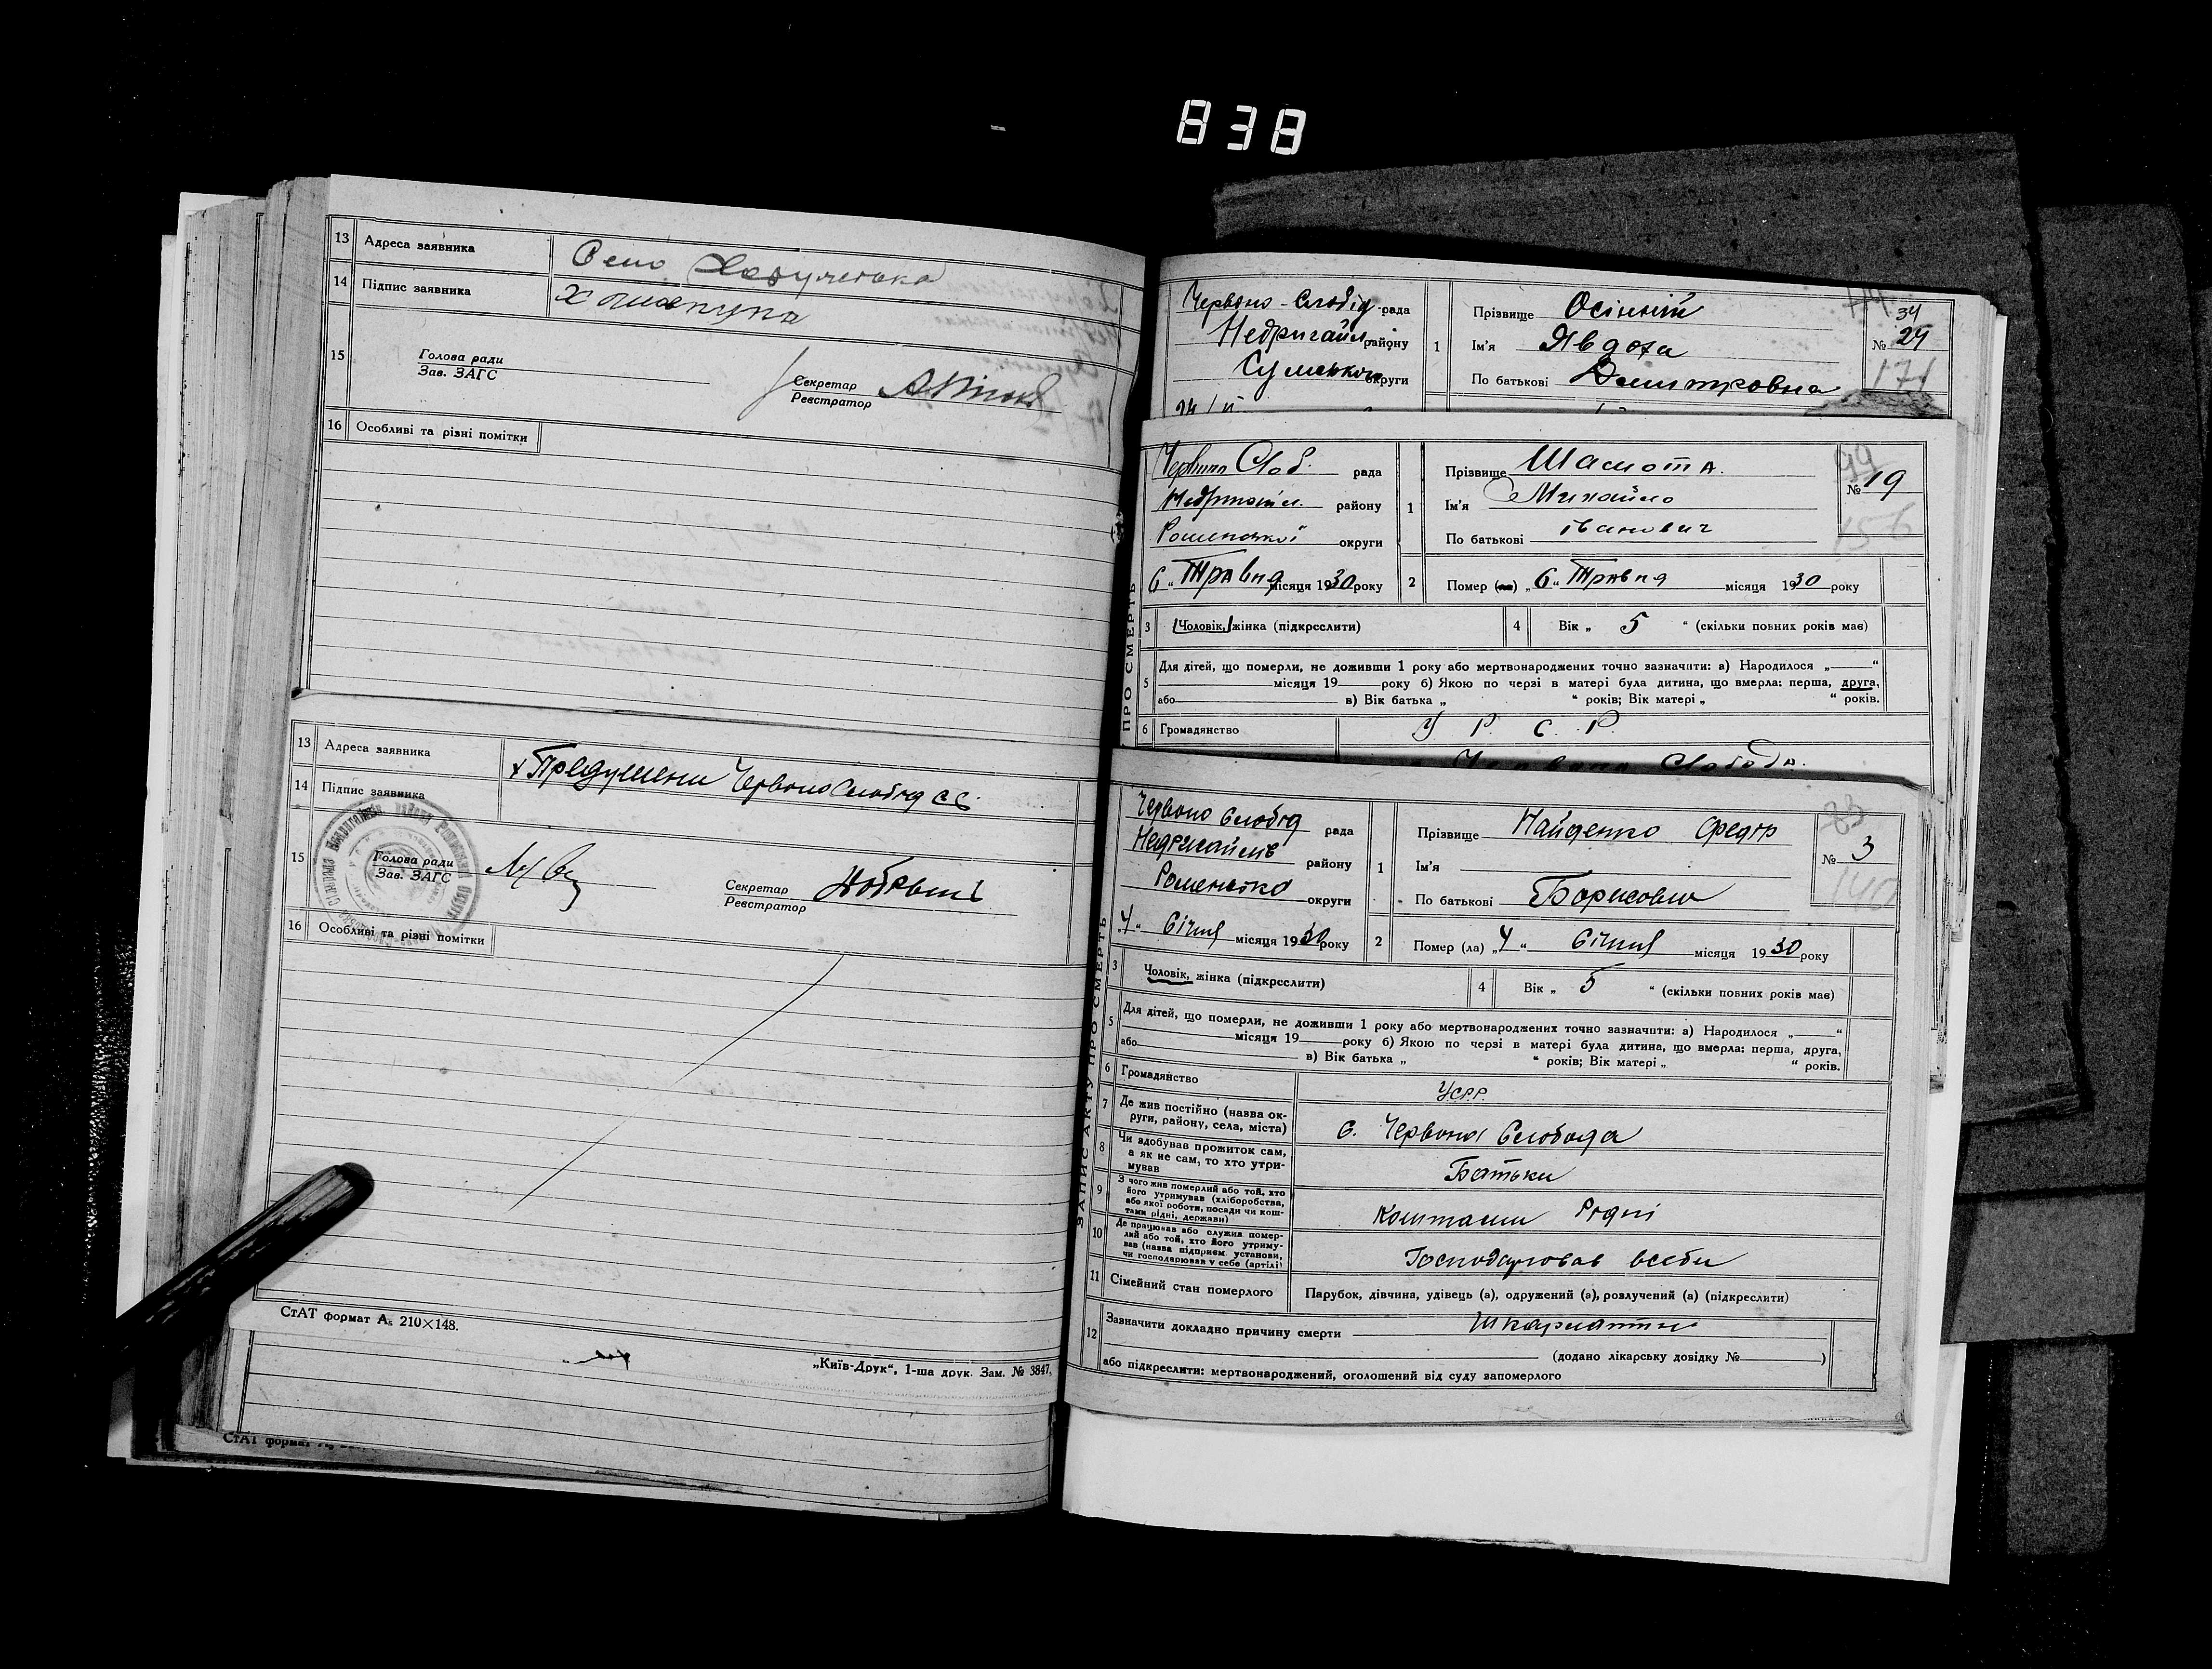 838
13 Адреса заявника Село
14 Підпис заявника
15 Голова ради
Зав. ЗАГС
Секретар
Реєстратор
16 Особливі та різні помітки
13 Адреса заявника
14 Підпис заявника
Червоно Слобід с С
15 Голова ради
Зав. ЗАГС
Секретар
Реєстратор
16 Особливі та різні помітки
СтАТ формат А₅ 210×148.
„Київ-Друк“, 1-ша друк. Зам. № 3847.
СтАТ формат
Червоно-Слобід рада
Недригайл району
Сумської округи
24/
1 Прізвище Осінній
Ім'я Явдоха
По батькові Дмитровна
34
№ 24
171
ПРО СМЕРТЬ
Червоно Слоб. рада
Недригайл. району
Роменської округи
„6“ Травня місяця 1930 року
1 Прізвище Шамота.
Ім'я Михайло
По батькові Іванович
99
№ 19
156
2 Помер (ла) „6“ Травня місяця 1930 року
3 Чоловік, жінка (підкреслити)
4 Вік „ 5 “ (скільки повних років має)
5 Для дітей, що померли, не доживши 1 року або мертвонароджених точно зазначити: а) Народилося „ “
місяця 19 року б) Якою по черзі в матері була дитина, що вмерла: перша, друга,
або в) Вік батька „ “ років; Вік матері „ “ років.
6 Громадянство У Р. С. Р.
Червона Слобода.
ЗАПИС АКТУ ПРО СМЕРТЬ
Червоно Слобід рада
Недригайлів району
Роменсько округи
„4“ Січня місяця 1930 року
1 Прізвище Найденко Федір
Ім'я
По батькові Борисович
№ 3
2 Помер (ла) „4“ Січня місяця 1930 року
3 Чоловік, жінка (підкреслити)
4 Вік „ 5 “ (скільки повних років має)
5 Для дітей, що померли, не доживши 1 року або мертвонароджених точно зазначити: а) Народилося „ “
місяця 19 року б) Якою по черзі в матері була дитина, що вмерла: перша, друга,
або в) Вік батька „ “ років; Вік матері „ “ років.
6 Громадянство УСРР.
7 Де жив постійно (назва округи, району, села, міста) с. Червона Слобода
8 Чи здобував прожиток сам, а як не сам, то хто утримував Батьки
9 З чого жив померлий або той, хто його утримував (хліборобства, або якої роботи, посади чи коштами рідні, держави) Коштами Рідні
10 Де працював або служив померлий або той, хто його утримував (назва підприєм. установи, чи господарював у себе (артілі) Господарював всеби
11 Сімейний стан померлого Парубок, дівчина, удівець (а), одружений (а), розлучений (а) (підкреслити)
12 Зазначити докладно причину смерти Шкарлатин
(додано лікарську довідку № )
або підкреслити: мертвонароджений, оголошений від суду запомерлого